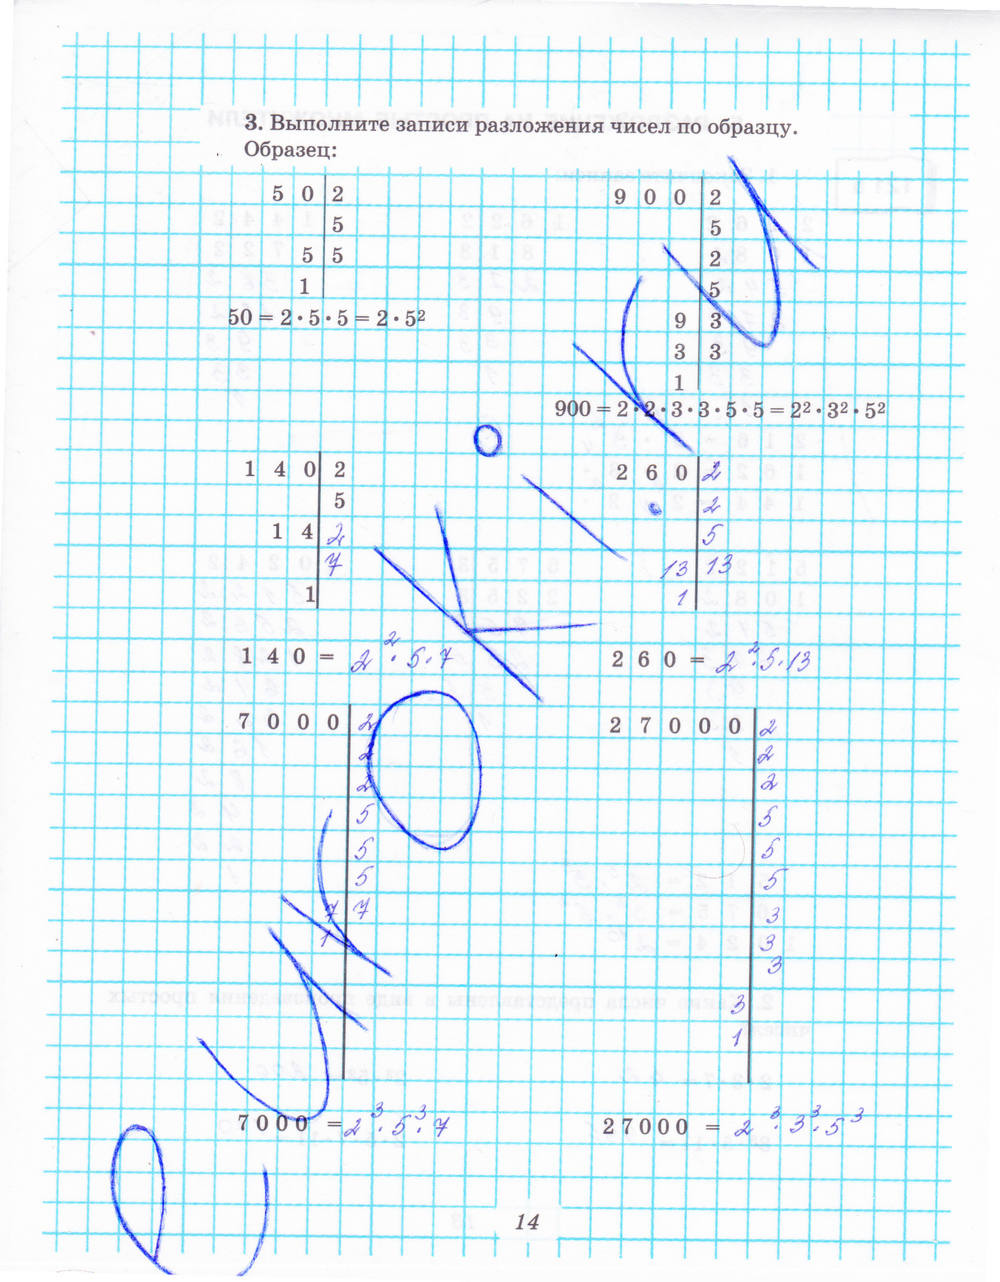 3. Выполните записи разложения чисел по образцу.
Образец:
5 0 | 2
5
5 | 5
1
50 = 2 · 5 · 5 = 2 · 5²
9 0 0 | 2
5
2
5
9 | 3
3 | 3
1
900 = 2 · 2 · 3 · 3 · 5 · 5 = 2² · 3² · 5²
1 4 0 | 2
5
1 4 | 2
7
1
1 4 0 = 2² · 5 · 7
2 6 0 | 2
2
5
13 | 13
1
2 6 0 = 2² · 5 · 13
7 0 0 0 | 2
2
2
5
5
5
7 | 7
1
7 0 0 0 = 2³ · 5³ · 7
2 7 0 0 0 | 2
2
2
5
5
5
3
3
3
3
1
2 7 0 0 0 = 2³ · 3³ · 5³
14